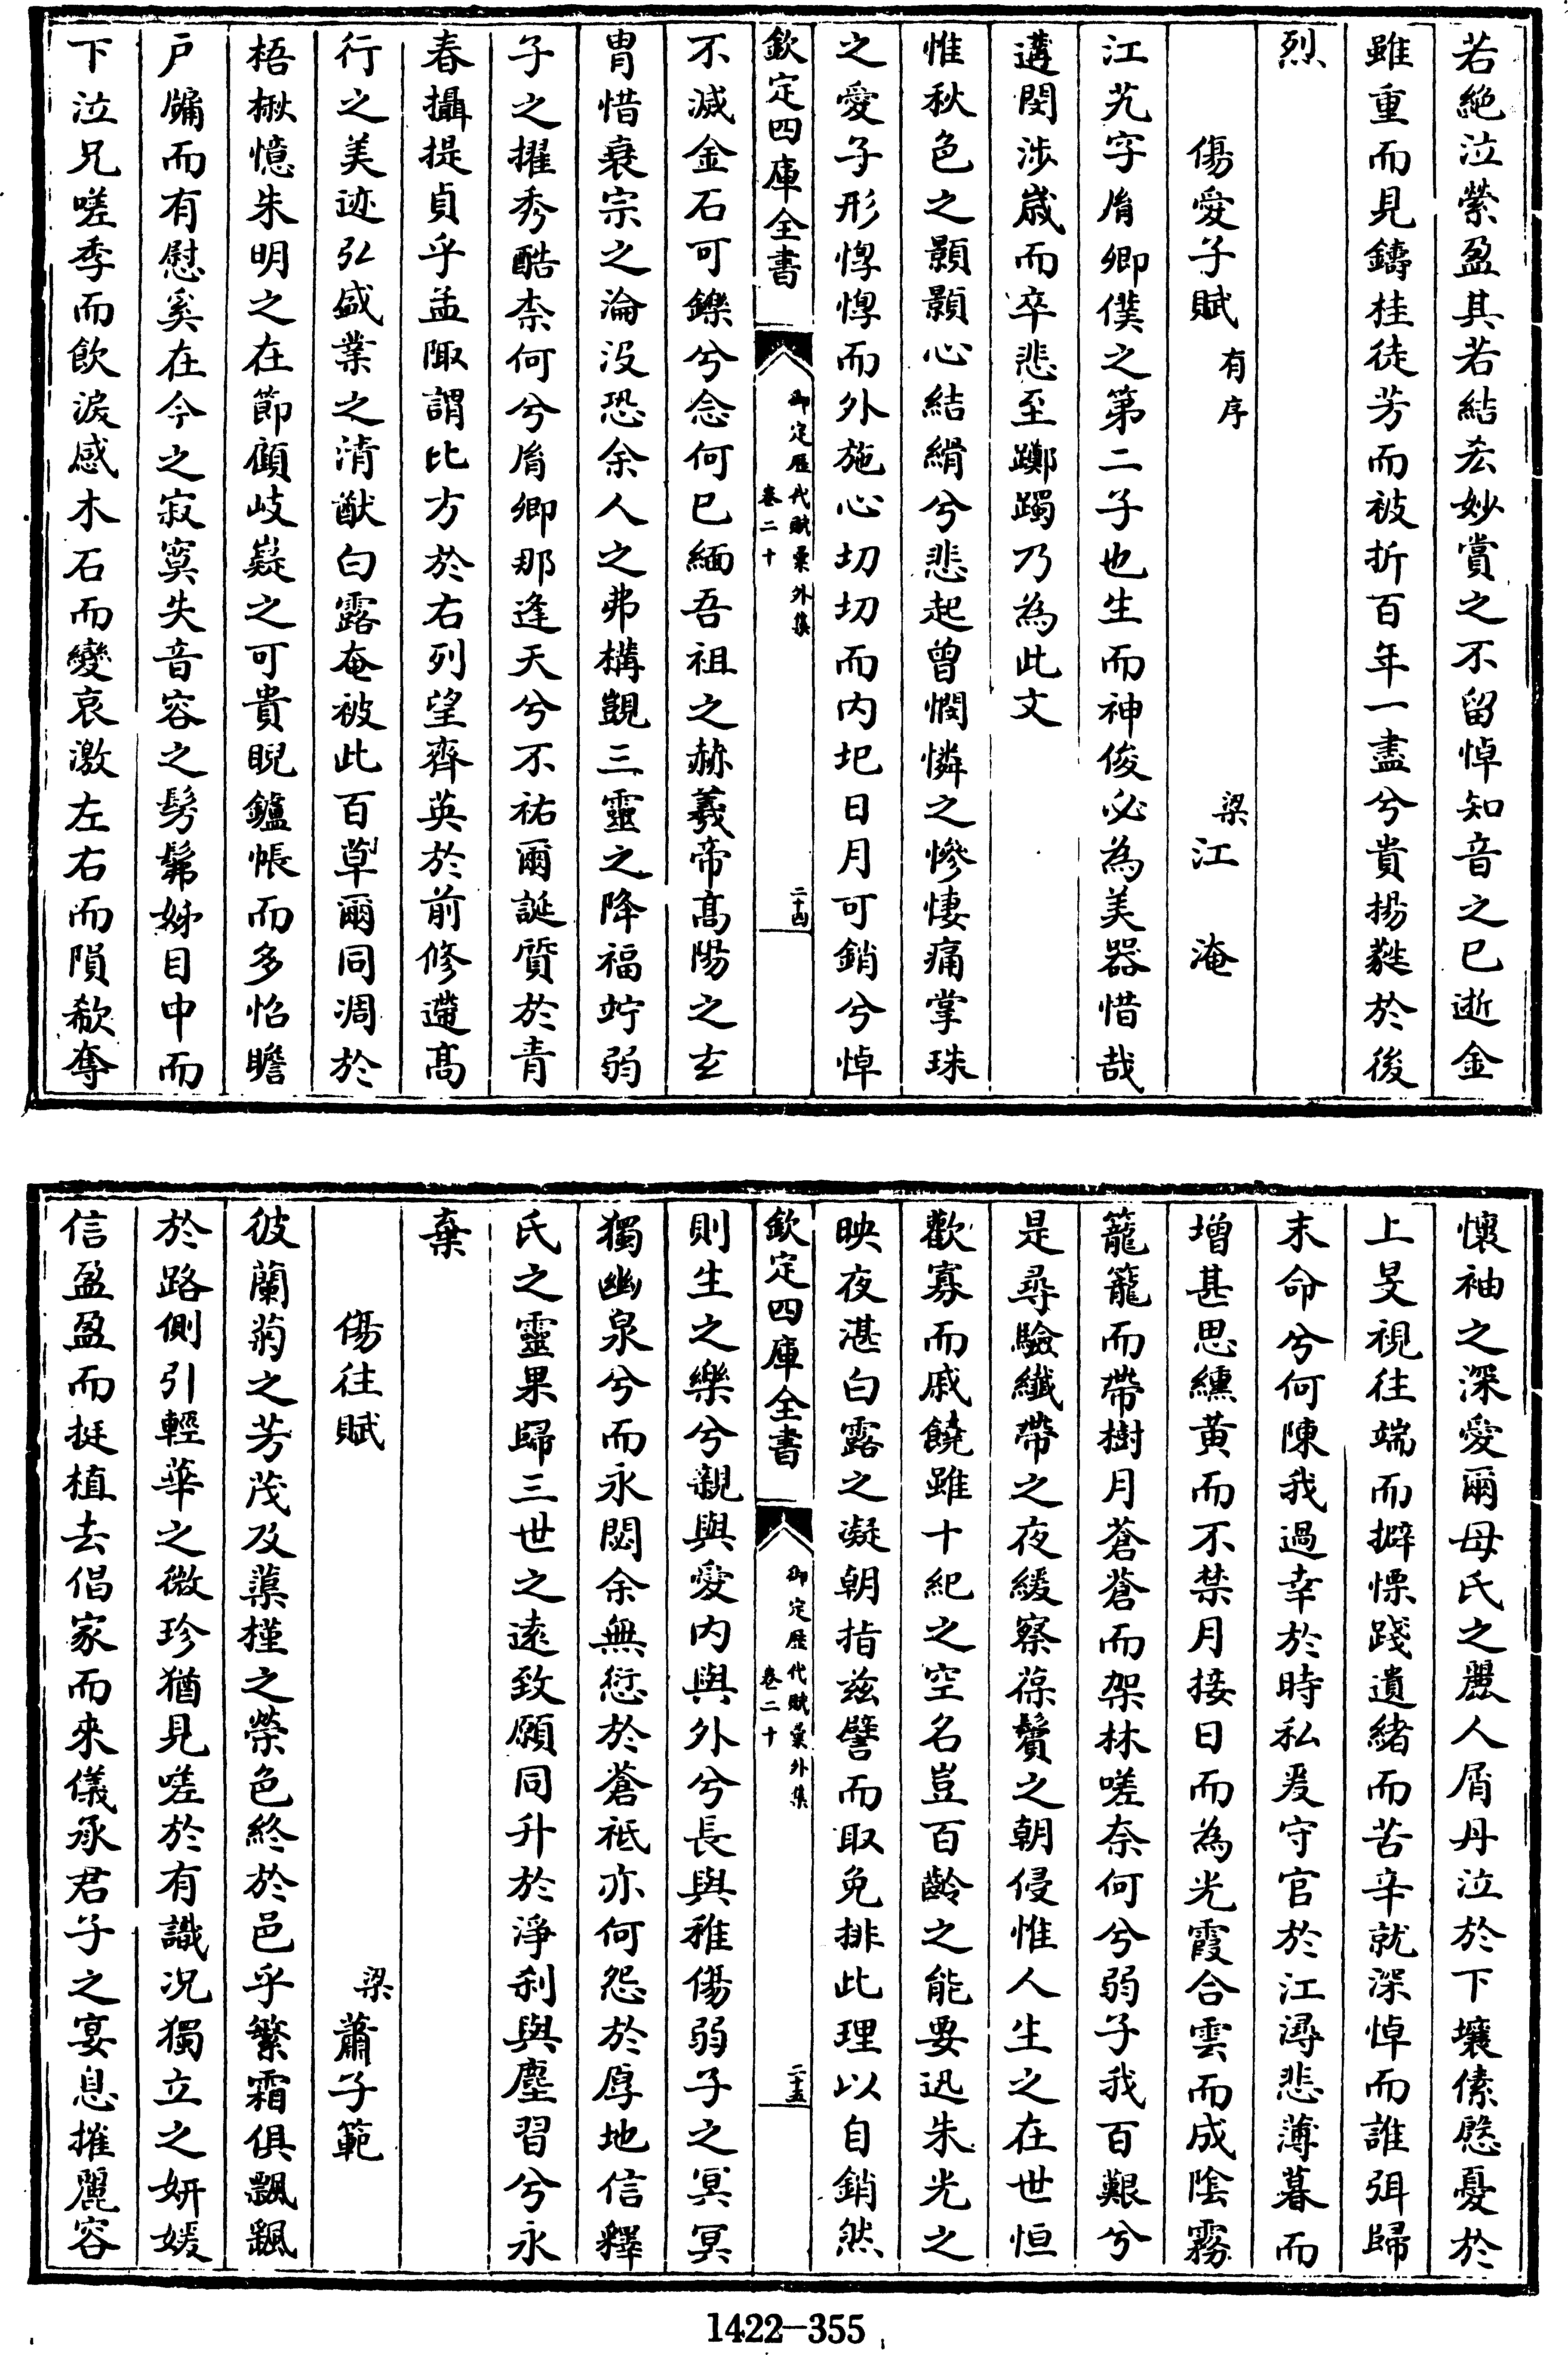 若絶泣縈盈其若結厺妙賞之不留悼知音之已逝金
雖重而見鑄桂徒芳而被折百年一盡兮貴揚蕤於後
烈
傷愛子賦有序 梁江淹
江艽字胤卿僕之第二子也生而神俊必為美器惜哉
遘閔涉歳而卒悲至躑躅乃為此文
惟秋色之顥顥心結縎兮悲起曾憫憐之慘悽痛掌珠
之愛子形惸惸而外施心切切而内圮日月可銷兮悼
欽定四庫全書 御定歴代賦彙外集 卷二十 二十四
不滅金石可鑠兮念何已緬吾祖之赫羲帝髙陽之玄
胄惜衰宗之淪没恐余人之弗構覬三靈之降福竚弱
子之擢秀酷柰何兮胤卿那逢天兮不祐爾誕質於青
春攝提貞乎孟陬謂比方於右列望齊英於前修遵髙
行之美迹弘盛業之清猷白露奄被此百草爾同凋於
梧楸憶朱明之在節顧岐嶷之可貴睨鑪帳而多怡瞻
戸牖而有慰奚在今之寂寞失音容之髣髴姊目中而
下泣兄嗟季而飲淚感木石而變哀激左右而隕欷奪
懷袖之深愛爾母氏之麗人屑丹泣於下壤傃慇憂於
上旻視往端而擗慄踐遺緒而苦辛就深悼而誰弭歸
末命兮何陳我過幸於時私爰守官於江潯悲薄暮而
增甚思纁黄而不禁月接日而為光霞合雲而成陰霧
籠籠而帶樹月蒼蒼而架林嗟奈何兮弱子我百艱兮
是尋驗纎帶之夜緩察葆鬢之朝侵惟人生之在世恒
歡寡而戚饒雖十紀之空名豈百齡之能要迅朱光之
映夜湛白露之凝朝指兹譬而取免排此理以自銷然
欽定四庫全書 御定歴代賦彙外集 卷二十 二十五
則生之樂兮親與愛内與外兮長與稚傷弱子之冥冥
獨幽泉兮而永閟余無愆於蒼祗亦何怨於厚地信釋
氏之靈果歸三世之逺致願同升於淨刹與塵習兮永
棄
傷往賦 梁蕭子範
彼蘭菊之芳茂及蕣槿之榮色終於邑乎繁霜俱飄飄
於路側引輕華之微珍猶見嗟於有識况獨立之妍媛
信盈盈而挺植去倡家而來儀承君子之宴息摧麗容
1422—355